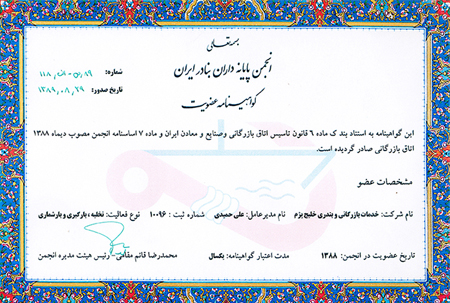 بسمه تعالی
انجمن پایانه داران بنادر ایران
گواهینامه عضویت
شماره:
تاریخ صدور: ۱۳۸۹٫۰۸٫۲۹
این گواهینامه به استناد بند ک ماده ۶ قانون تاسیس اتاق بازرگانی وصنایع و معادن ایران و ماده ۷ اساسنامه انجمن مصوب دیماه ۱۳۸۸
اتاق بازرگانی صادر گردیده است.
مشخصات عضو
نام شرکت: خدمات بازرگانی و بندری خلیج پزم نام مدیرعامل: علی حمیدی شماره ثبت: ۱۰۰۹۶ نوع فعالیت: تخلیه، بارگیری و بارشماری
تاریخ عضویت در انجمن: ۱۳۸۸ مدت اعتبار گواهینامه: یکسال محمدرضا قائم مقامی - رئیس هیئت مدیره انجمن